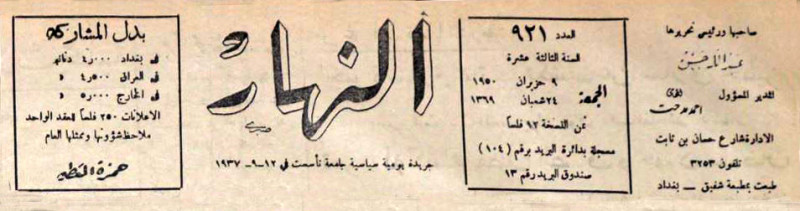 صاحبها ورئيس تحريرها
عبد الله حسن
المدير المسؤول
الادارة شارع حسان بن ثابت
تلفون ٣٢٥٣
طبعت بمطبعة شفيق - بغداد
العدد ٩٢١
السنة الثالثة عشرة
الجمعة
٩ حزيران ١٩٥٠
٢٤ شعبان ١٣٦٩
ثمن النسخة ١٢ فلساً
مسجلة بدائرة البريد برقم (١٠٤)
صندوق البريد رقم ١٣
النهار
صبري
جريدة يومية سياسية جامعة تأسست في ١٢-٩-١٩٣٧
بدل المشاركة
في بغداد ٤٫٠٠٠ دنانير
في العراق ٤٫٥٠٠ »
في الخارج ٥٫٠٠٠ »
الاعلانات ٢٥٠ فلساً للعقد الواحد
ملاحظ شؤونها وممثلها العام
حمزة القطه